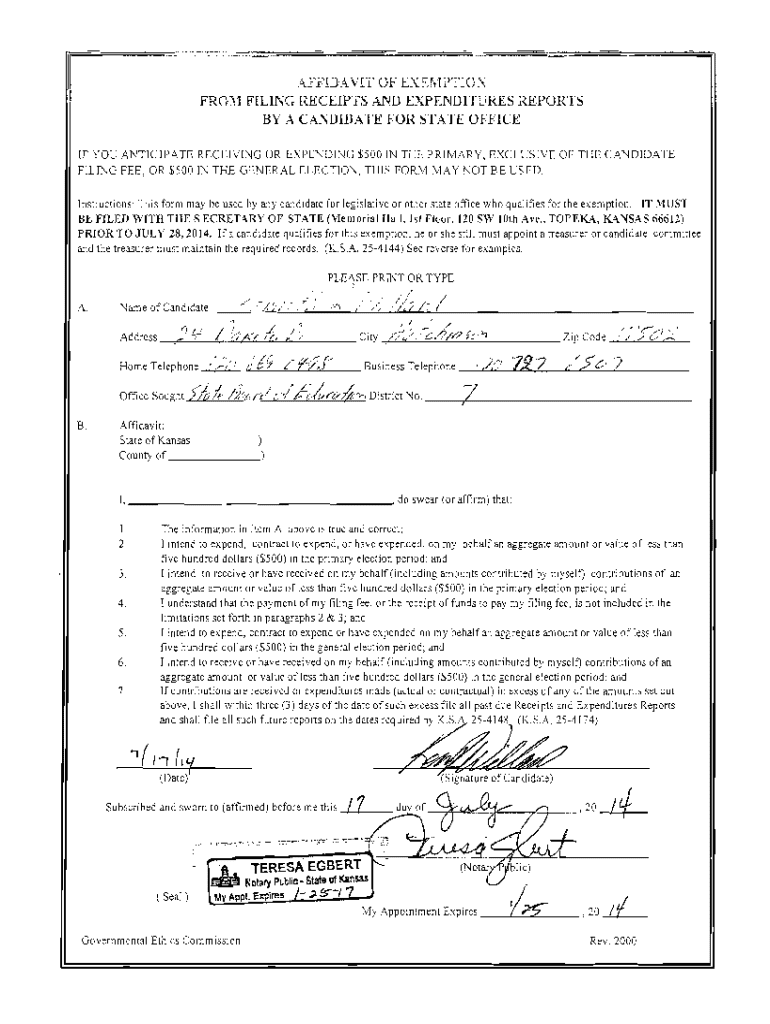 AFFIDAVIT OF EXEMPTION
FROM FILING RECEIPTS AND EXPENDITURES REPORTS
BY A CANDIDATE FOR STATE OFFICE
IF YOU ANTICIPATE RECEIVING OR EXPENDING $500 IN THE PRIMARY, EXCLUSIVE OF THE CANDIDATE
FILING FEE, OR $500 IN THE GENERAL ELECTION, THIS FORM MAY NOT BE USED.
Instructions: This form may be used by any candidate for legislative or other state office who qualifies for the exemption. IT MUST
BE FILED WITH THE SECRETARY OF STATE (Memorial Hall, 1st Floor, 120 SW 10th Ave., TOPEKA, KANSAS 66612)
PRIOR TO JULY 28, 2014. If a candidate qualifies for this exemption, he or she still must appoint a treasurer or candidate committee
and the treasurer must maintain the required records. (K.S.A. 25-4144) See reverse for examples.
PLEASE PRINT OR TYPE
A. Name of Candidate Willard
Address 24 Dakota Dr City Hutchinson Zip Code
Home Telephone Business Telephone 727
Office Sought State Board of Education District No. 7
B. Affidavit:
State of Kansas )
County of )
I, , do swear (or affirm) that:
1. The information in Item A above is true and correct;
2. I intend to expend, contract to expend, or have expended, on my behalf an aggregate amount or value of less than
five hundred dollars ($500) in the primary election period; and
3. I intend to receive or have received on my behalf (including amounts contributed by myself) contributions of an
aggregate amount or value of less than five hundred dollars ($500) in the primary election period; and
4. I understand that the payment of my filing fee, or the receipt of funds to pay my filing fee, is not included in the
limitations set forth in paragraphs 2 & 3; and
5. I intend to expend, contract to expend or have expended on my behalf an aggregate amount or value of less than
five hundred dollars ($500) in the general election period; and
6. I intend to receive or have received on my behalf (including amounts contributed by myself) contributions of an
aggregate amount or value of less than five hundred dollars ($500) in the general election period; and
7. If contributions are received or expenditures made (actual or contractual) in excess of any of the amounts set out
above, I shall within three (3) days of the date of such excess file all past due Receipts and Expenditures Reports
and shall file all such future reports on the dates required by K.S.A. 25-4148. (K.S.A. 25-4174)
7/17/14 Willard
(Date) (Signature of Candidate)
Subscribed and sworn to (affirmed) before me this 17 day of July, 20 14
Teresa Egbert
(Notary Public)
TERESA EGBERT
Notary Public - State of Kansas
(Seal) My Appt. Expires 1-25-17
My Appointment Expires 1/25, 20 14
Governmental Ethics Commission Rev. 2000